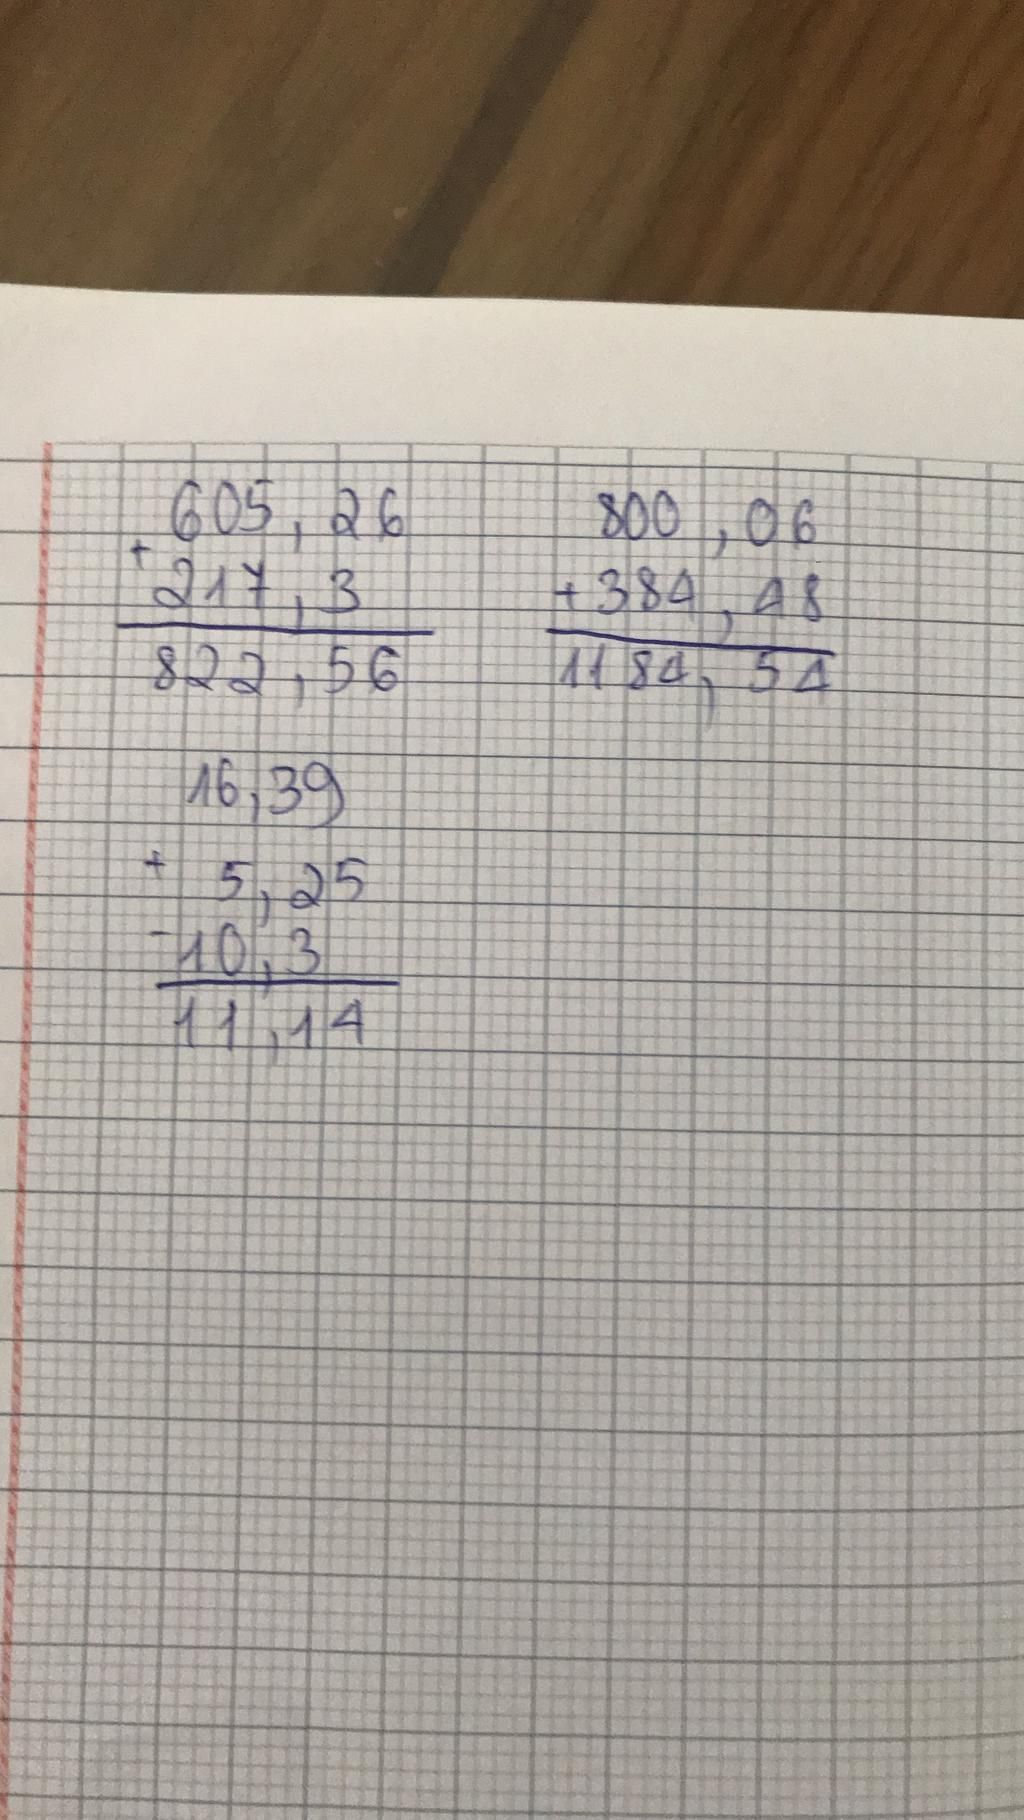 605,26
+
217,3
822,56
800,06
+384,48
1184,54
16,39
+ 5,25
-10,3
11,14